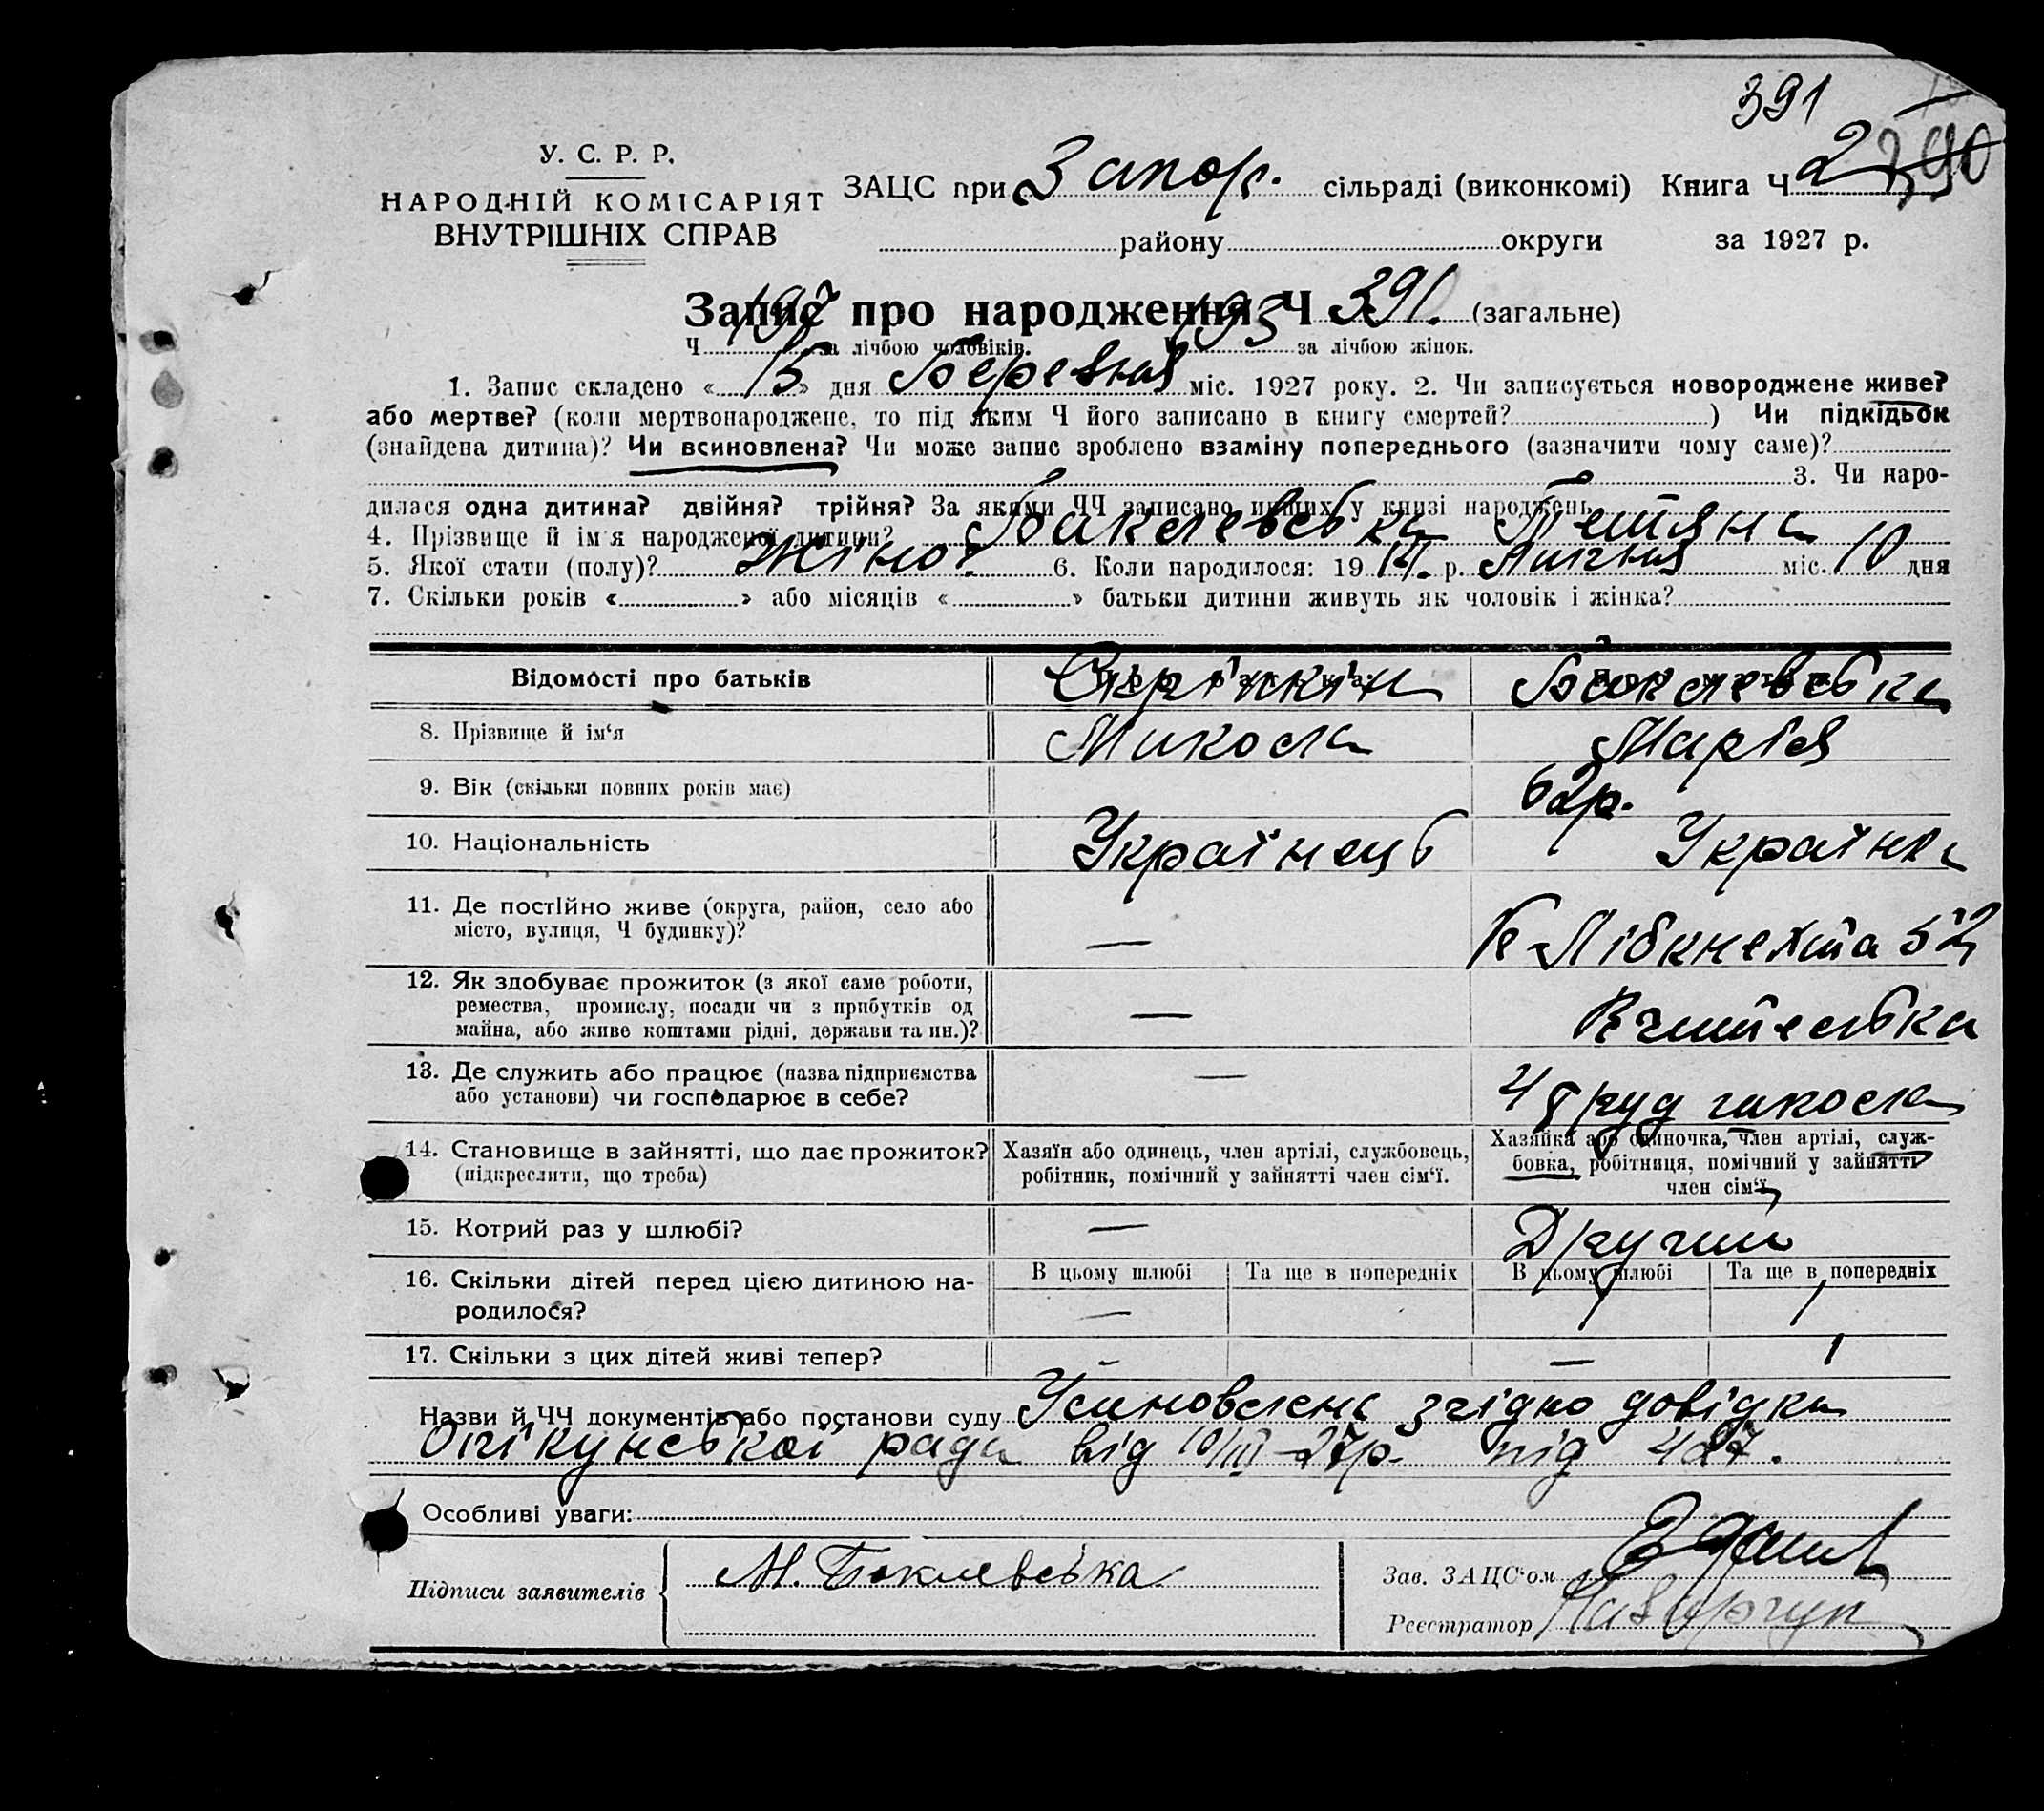 391
У. С. Р. Р.
НАРОДНІЙ КОМІСАРІЯТ
ВНУТРІШНІХ СПРАВ
ЗАЦС при Запор. сільраді (виконкомі) Книга Ч 2 390
району округи за 1927 р.
Запис про народження Ч 391. (загальне)
Ч 197 за лічбою чоловіків. 193 за лічбою жінок.
1. Запис складено « 15 » дня Березня міс. 1927 року. 2. Чи записується новороджене живе?
або мертве? (коли мертвонароджене, то під яким Ч його записано в книгу смертей? ) Чи підкідьок
(знайдена дитина)? Чи всиновлена? Чи може запис зроблено взаміну попереднього (зазначити чому саме)?
3. Чи наро-
дилася одна дитина? двійня? трійня? За якими ЧЧ записано инших у книзі народжень
4. Прізвище й ім'я народженої дитини? Баклевська Тетяна
5. Якої стати (полу)? Жіно. 6. Коли народилося: 19 14. р. Липня міс. 10 дня
7. Скільки років « » або місяців « » батьки дитини живуть як чоловік і жінка?
Відомості про батьків
8. Прізвище й ім'я Микола Марія
9. Вік (скільки повних років має) 62р.
10. Національність Українець Українка
11. Де постійно живе (округа, район, село або
місто, вулиця, Ч будинку)? — К Лібкнехта 52
12. Як здобуває прожиток (з якої саме роботи,
ремества, промислу, посади чи з прибутків од
майна, або живе коштами рідні, держави та ин.)? — Вчителька
13. Де служить або працює (назва підприємства
або установи) чи господарює в себе? — 4 труд школа
14. Становище в зайнятті, що дає прожиток?
(підкреслити, що треба)
Хазяїн або одинець, член артілі, службовець,
робітник, помічний у зайнятті член сім'ї.
Хазяйка або одиночка, член артілі, служ-
бовка, робітниця, помічний у зайнятті
член сім'ї
15. Котрий раз у шлюбі? — Другий
16. Скільки дітей перед цією дитиною на-
родилося?
В цьому шлюбі Та ще в попередніх В цьому шлюбі Та ще в попередніх
— 1 1
17. Скільки з цих дітей живі тепер? – — 1
Назви й ЧЧ документів або постанови суду Усиновлена згідно довідки
Опікунської ради від 10/III–27р. під 427.
Особливі уваги:
Підписи заявителів М. Баклевська
Зав. ЗАЦС'ом
Реєстратор